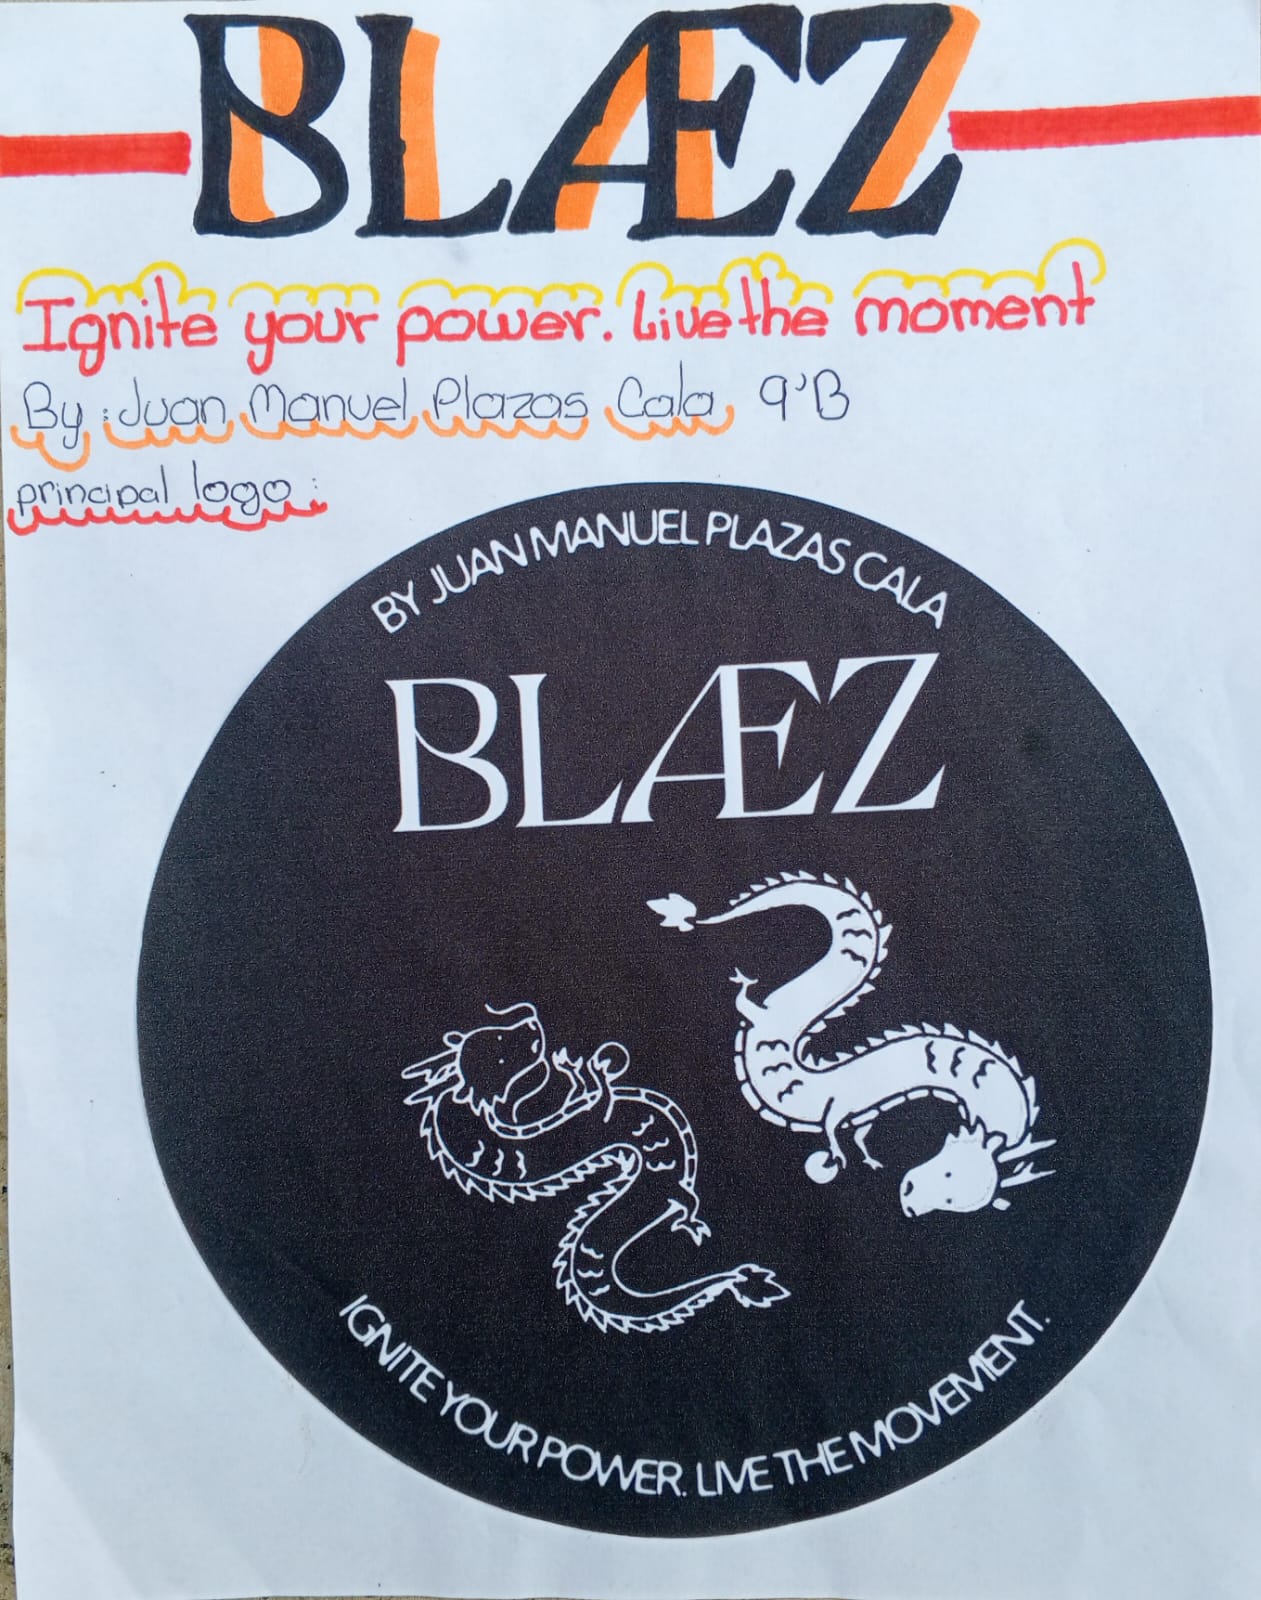 BLÆZ
Ignite your power. Live the moment
By: Juan Manuel Plazas Cala 9'B
principal logo:
BY JUAN MANUEL PLAZAS CALA
BLÆZ
IGNITE YOUR POWER. LIVE THE MOVEMENT.